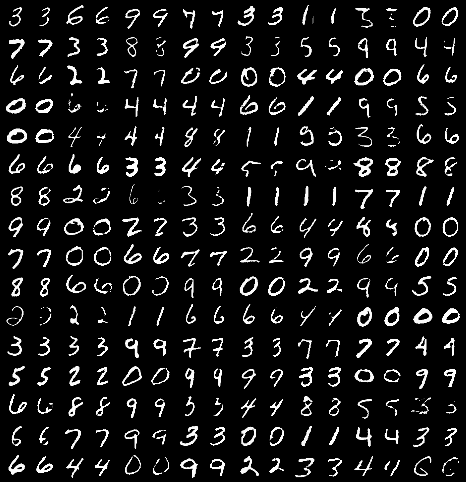 3 3 6 6 9 9 7 7 3 3 1 1 5 5 0 0
7 7 3 3 8 8 9 9 3 3 5 5 9 9 4 4
6 6 2 2 7 7 0 0 0 0 4 4 0 0 6 6
0 0 6 6 4 4 4 4 6 6 1 1 9 9 5 5
0 0 4 4 4 4 8 8 1 1 9 3 3 6 6
6 6 6 6 3 3 4 4 5 5 9 8 8 8 8
8 8 2 2 6 3 3 1 1 1 1 7 7 1 1
9 9 0 0 2 2 3 3 6 6 4 4 8 8 0 0
7 7 0 0 6 6 7 7 2 2 9 9 6 6 0 0
8 8 6 6 0 0 9 9 0 0 2 2 9 9 5 5
2 2 2 2 1 1 6 6 6 6 4 4 0 0 0 0
3 3 3 3 9 9 7 7 3 3 7 7 7 7 4 4
5 5 2 2 0 0 9 9 9 9 3 3 0 0 9 9
6 6 8 8 9 9 5 5 4 4 8 8 5 5
6 6 7 7 9 9 3 3 0 0 1 1 4 4 3 3
6 6 4 4 0 0 9 9 2 2 3 3 4 4 6 6